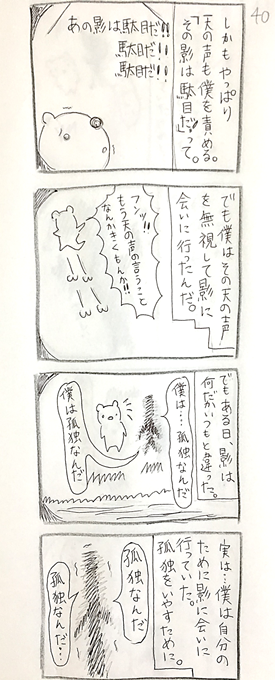 40
しかもやっぱり
天の声も僕を責める。
「その影は駄目だ」って。
あの影は駄目だ!!
駄目だ!!
駄目だ!!
でも僕はその天の声
を無視して影に
会いに行ったんだ。
フンッ!!
もう天の声の言うこと
なんかきくもんか!!
でもある日、影は
何だかいつもと違った。
僕は…孤独なんだ
僕は孤独なんだ
実は…僕は自分の
ために影に会いに
行っていた。
孤独をいやすために。
孤独なんだ
孤独なんだ…